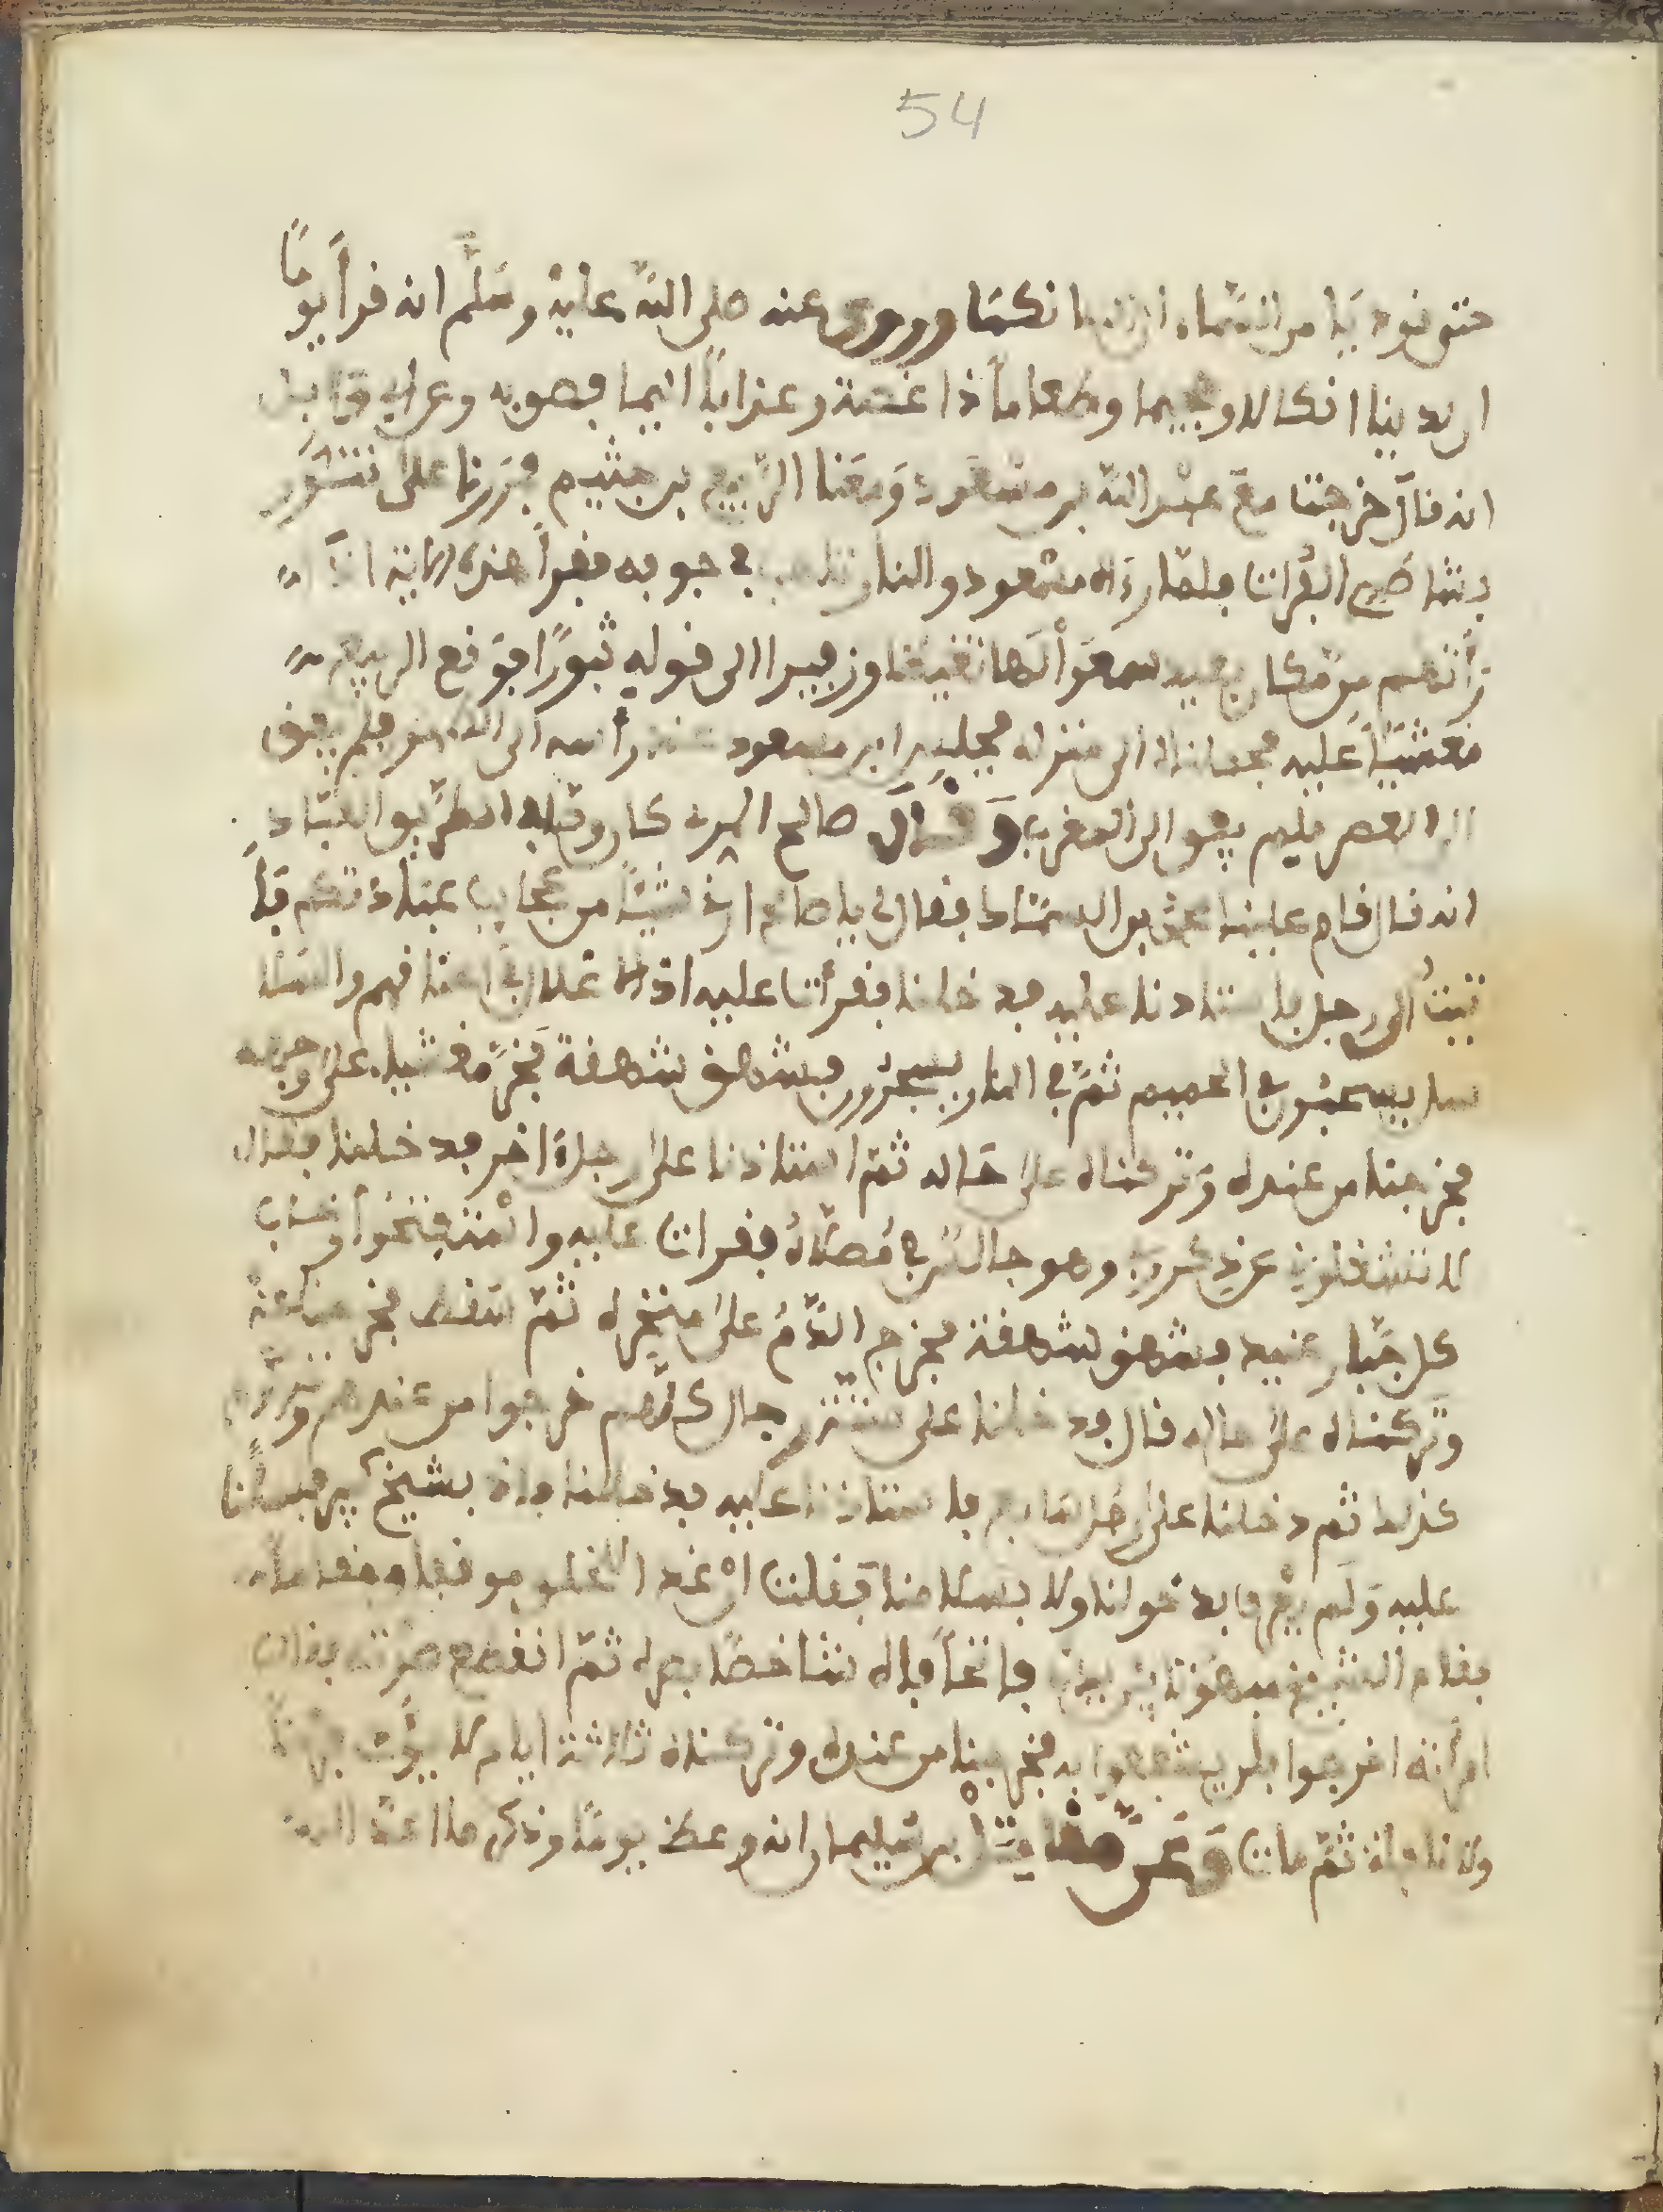 54
حتى نوديا من السماء ان وروي عنه صلى الله عليه وسلم انه قرأ يوما
ان لدينا انكالا وجحيما وطعاما ذا غصة وعذابا اليما فصعق وعن ابي وايل
انه قال خرجنا مع عبد الله بن مسعود ومعنا الربيع بن خثيم فمررنا على تنور
بشاطئ الفرات فلما رءاه مسعود والنار تلتهب في جوفه فقرأ هذه الاية اذا
رأتهم من مكان بعيد سمعوا لها تغيظا وزفيرا الى قوله ثبورا فوقع الربيع
مغشيا عليه فحملناه الى منزله فجلس ابن مسعود عند رأسه الى الظهر فلم يفق
الى العصر فلم يفق الى المغرب وقال صالح المري كان وقبله
انه قال قام علينا محمد بن السماك فقال لي يا صالح ارني شيئا من عجايب عبادكم فأ
تيت الى رجل فاستاذنا عليه فدخلنا فقرأت عليه اذ الاغلال في اعناقهم والسلا
سل يسحبون في الحميم ثم في النار يسجرون فشهق شهقة فخر مغشيا على وجهه
فخرجنا من عنده وتركناه على حاله ثم استاذنا على رجل اخر فدخلنا فقال
لا تشغلوني عن ربي وهو جالس في مصلاه فقرات عليه واستفتحوا وخاب
كل جبار عنيد فشهق شهقة فخرج الدم على منخره ثم سقط فخرجنا عنه
وتركناه على حاله قال فدخلنا على ستة رجال كلهم خرجوا من عندهم وتركناهم
كذلك ثم دخلنا على رجل سابع فاستاذنا عليه فدخلنا فاذا بشيخ كبير فسلمنا
عليه ولم يعرف بدخولنا ولا بسلامنا فقلت ان غدا للخلق موقفا ومقاما
فقام الشيخ مبهوتا بين يدي فاتحا فاه شاخصا بصره ثم انقطع صوته فقالت
امرأته اخرجوا فلن ينتفعوا به فخرجنا من عنده وتركناه ثلاثة ايام لا يؤدي فرضا
ولا نافلة ثم مات وعن بن سليمان انه وعظ يوما وذكر ما اعد الله